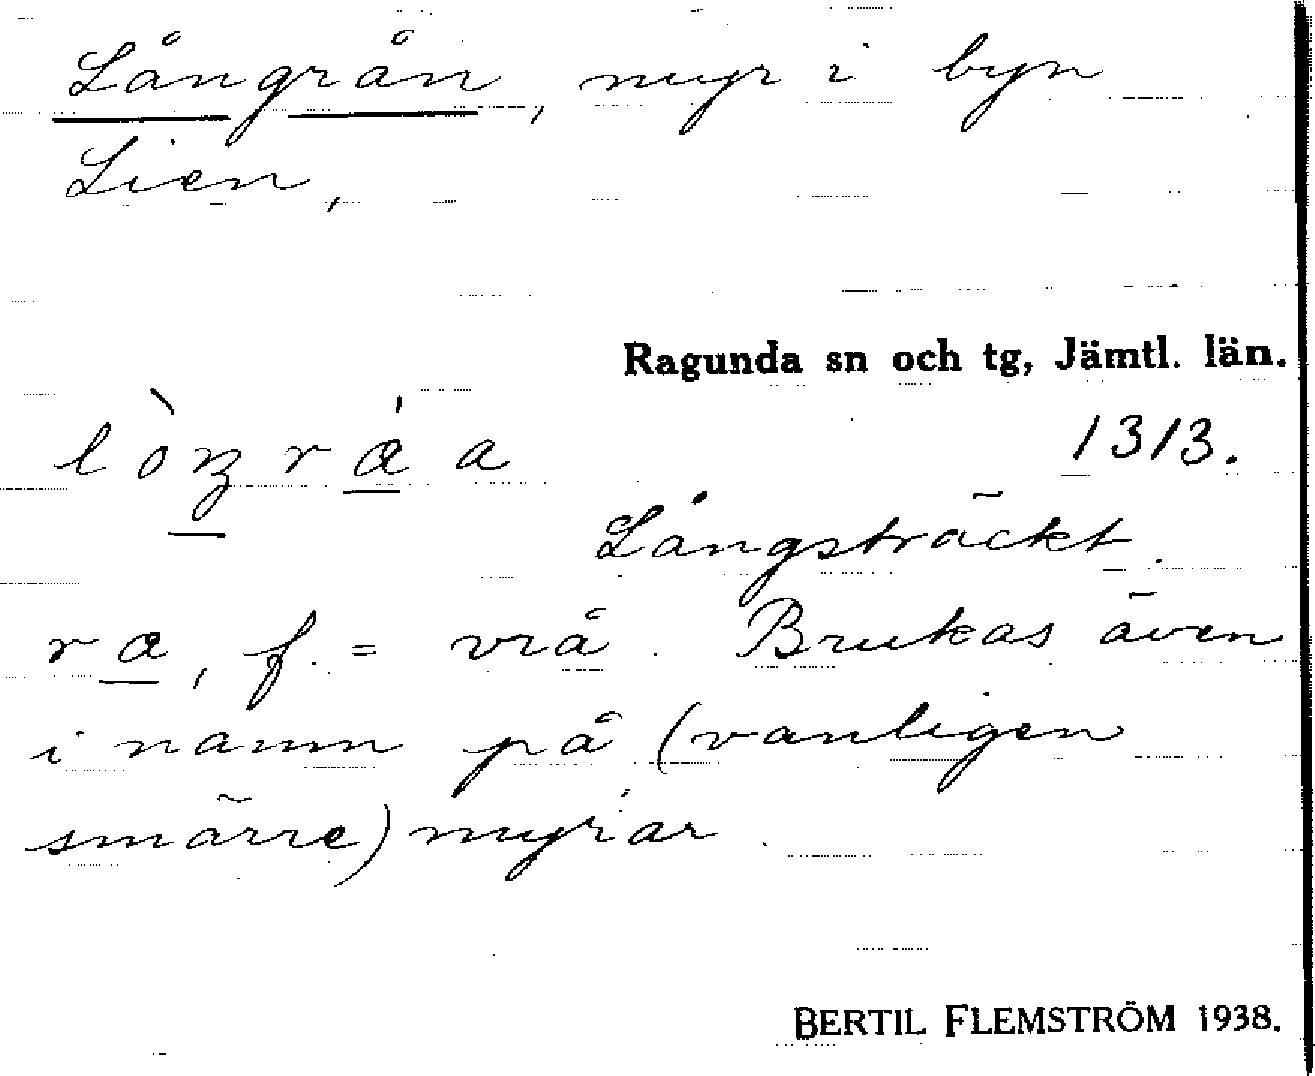 Långrån, myr i byn
Lien,
Ragunda sn och tg, Jämtl. län.
1313.
Långsträckt.
ra, f. = vrå. Brukas även
i namn på (vanligen
smärre) myrar.
BERTIL FLEMSTRÖM 1938.